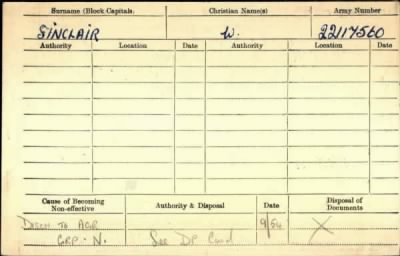 Surname (Block Capitals. Christian Name(s) Army Number
SINCLAIR W. 22117560
Authority Location Date Authority Location Date
Cause of Becoming Non-effective Authority & Disposal Date Disposal of Documents
Disch to AER 9/54 X
GRP. N. See DP Card